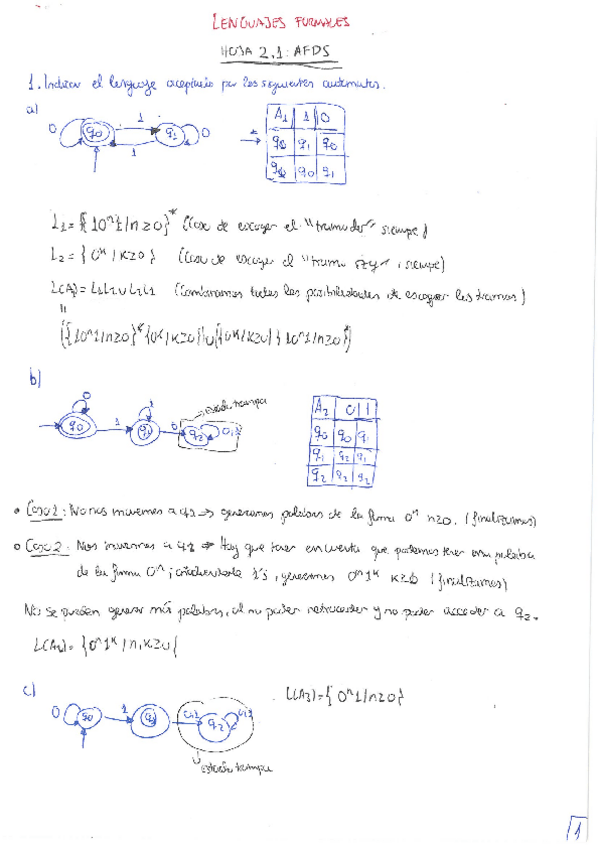 LENGUAJES FORMALES
HOJA 2.1: AFDS
1. Indicar el lenguaje aceptado por los siguientes autómatas.
a)
0 q0 1 1 q1 0
A1 1 0
q1 q0
q0 q1
L1 = {10^n 1 / n≥0}* (Caso de escoger el siempre)
L2 = { 0^k / k≥0 } (Caso de escoger el siempre)
(Combinamos todas las posibilidades de escoger los tramos)
"
b)
0 q0 1 1 q1 0 q2 0,1 Estado trampa
A2 0 1
q0 q0 q1
q1 q2 q1
q2 q2 q2
• Caso 1: No nos movemos a q1 → generamos palabras de la forma 0^n n≥0. (finalizamos)
• Caso 2: Nos movemos a q1 → Hay que tener en cuenta que podemos tener una palabra
de la forma 0^n; 1's, generamos 0^n 1^k k≥0 (finalizamos)
No se pueden generar más palabras, al no poder retroceder y no poder acceder a q2.
L(A2) = {0^n 1^k / n,k≥0}
c)
0 q0 1 q1 0,1 q2 0,1
L(A3) = { 0^n 1 / n≥0 }
estado trampa
1